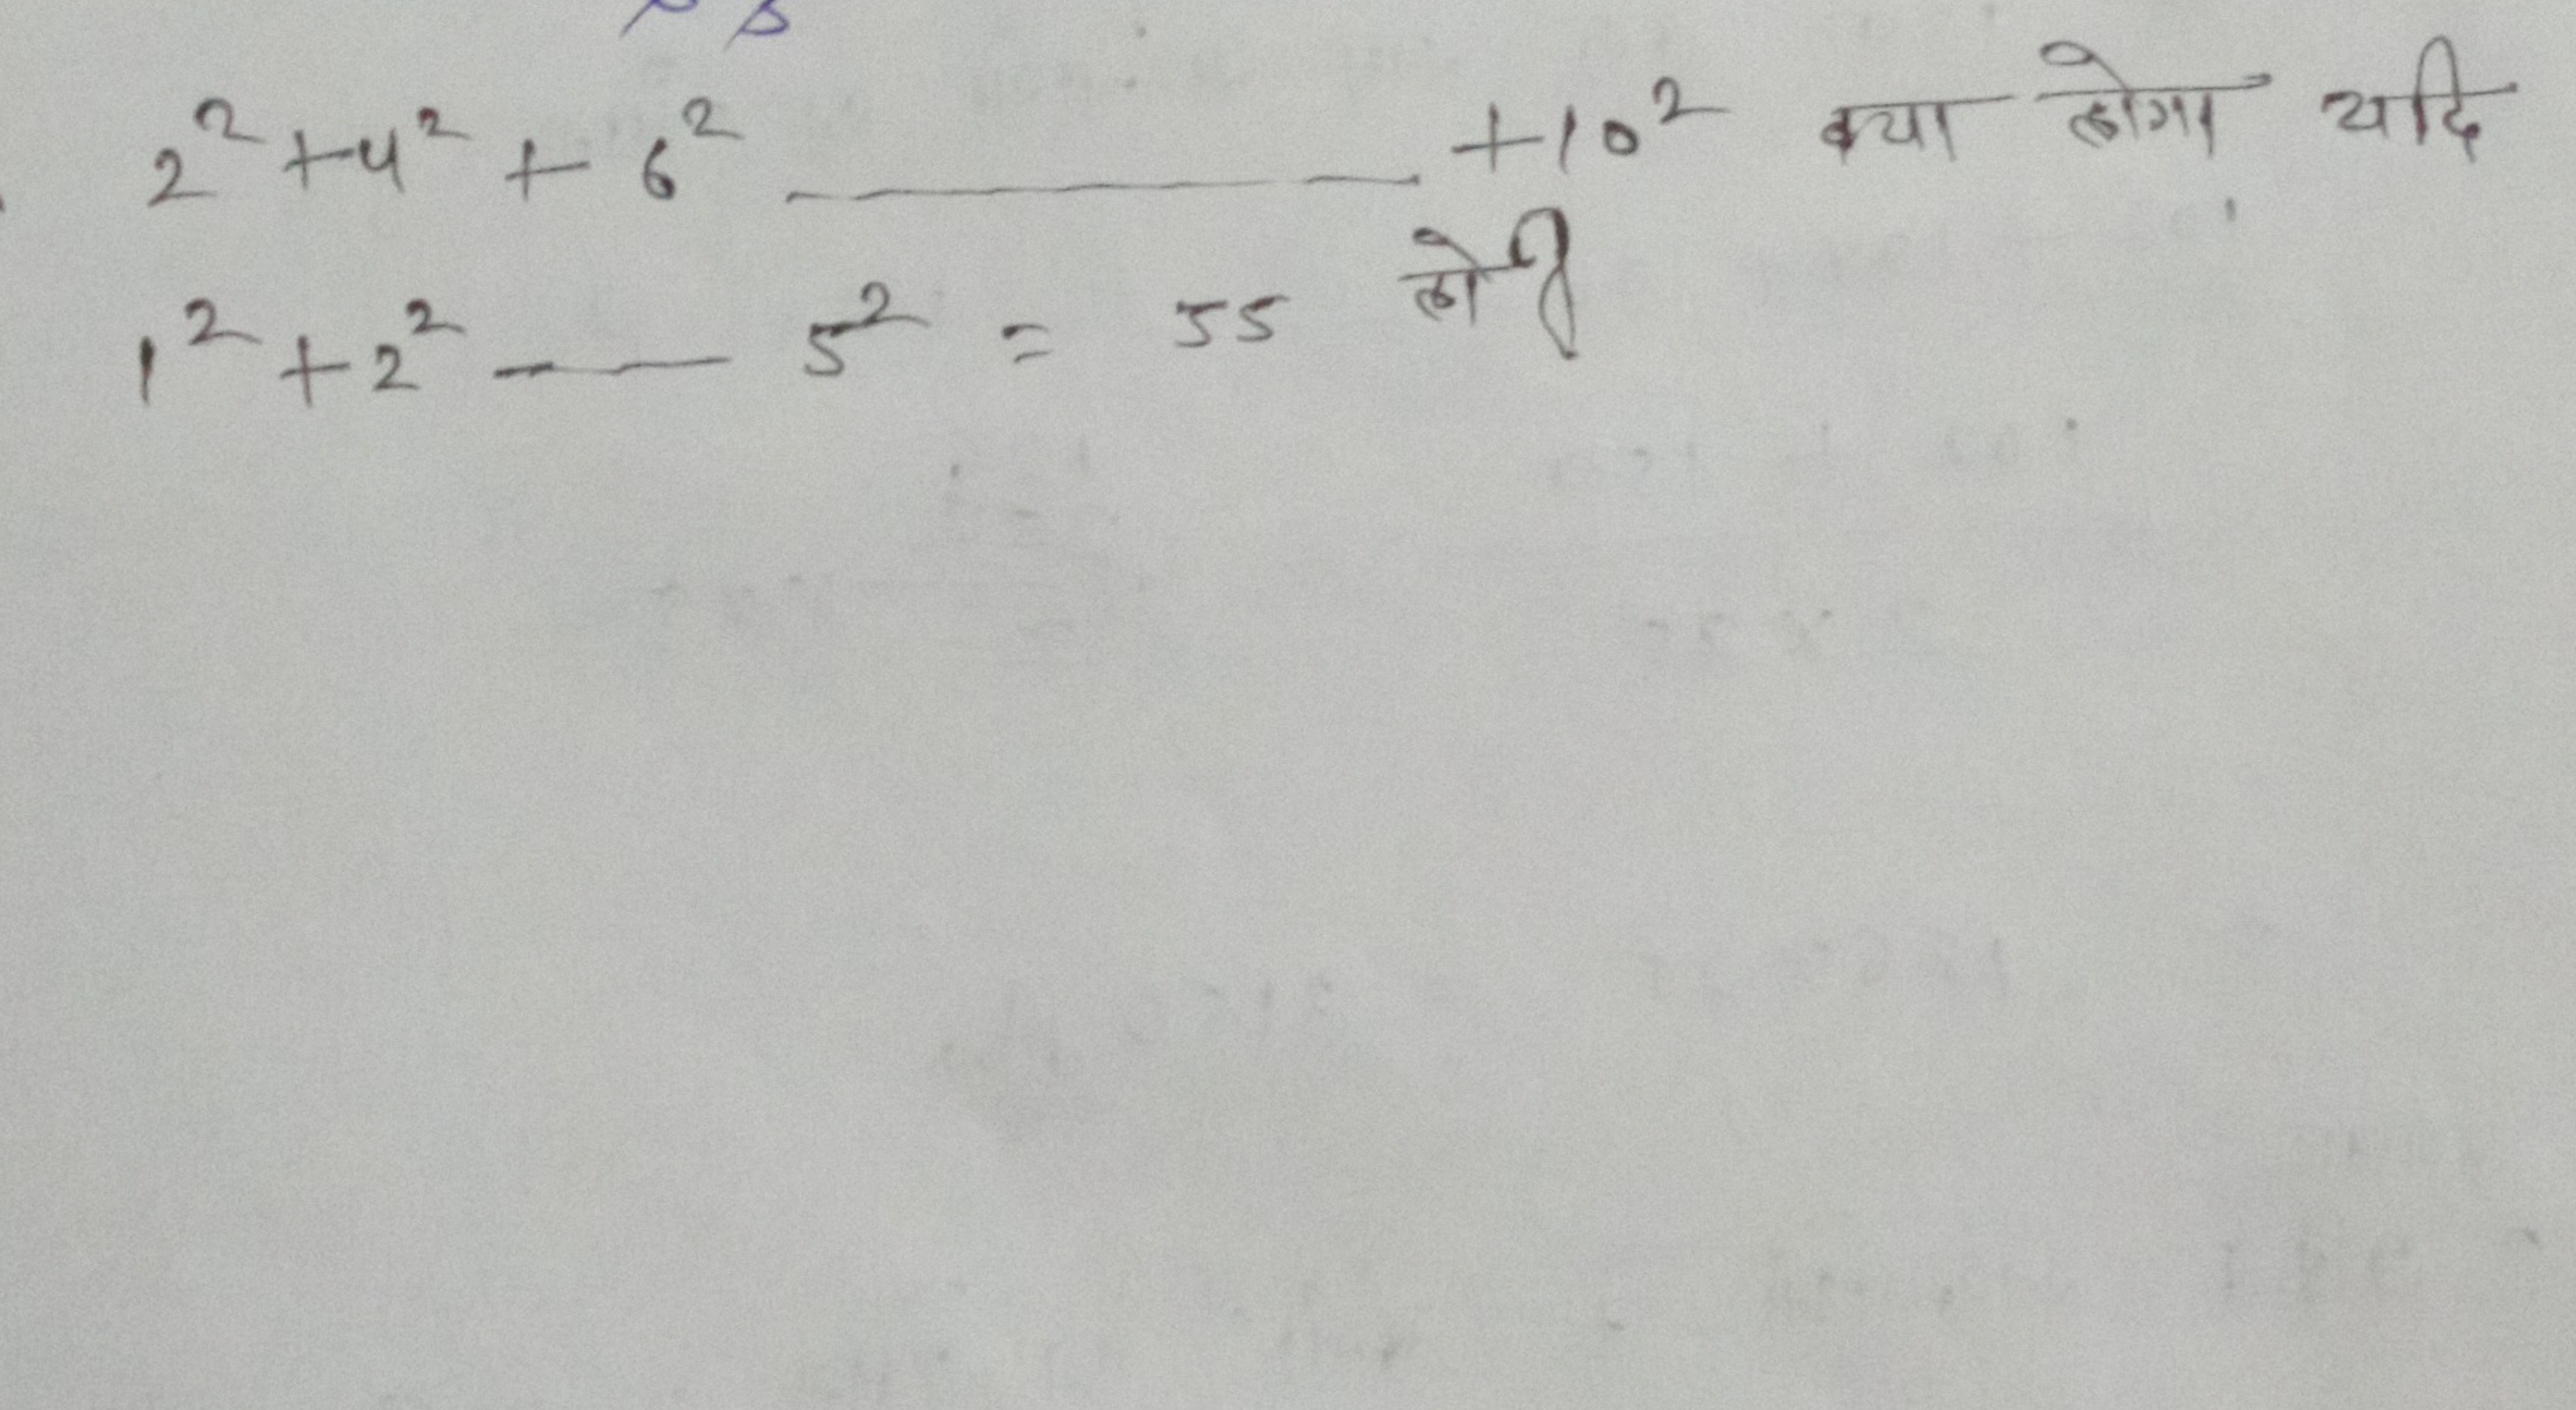 2² + 4² + 6² ______ + 10² क्या होगा यदि
1² + 2² —— 5² = 55 हो